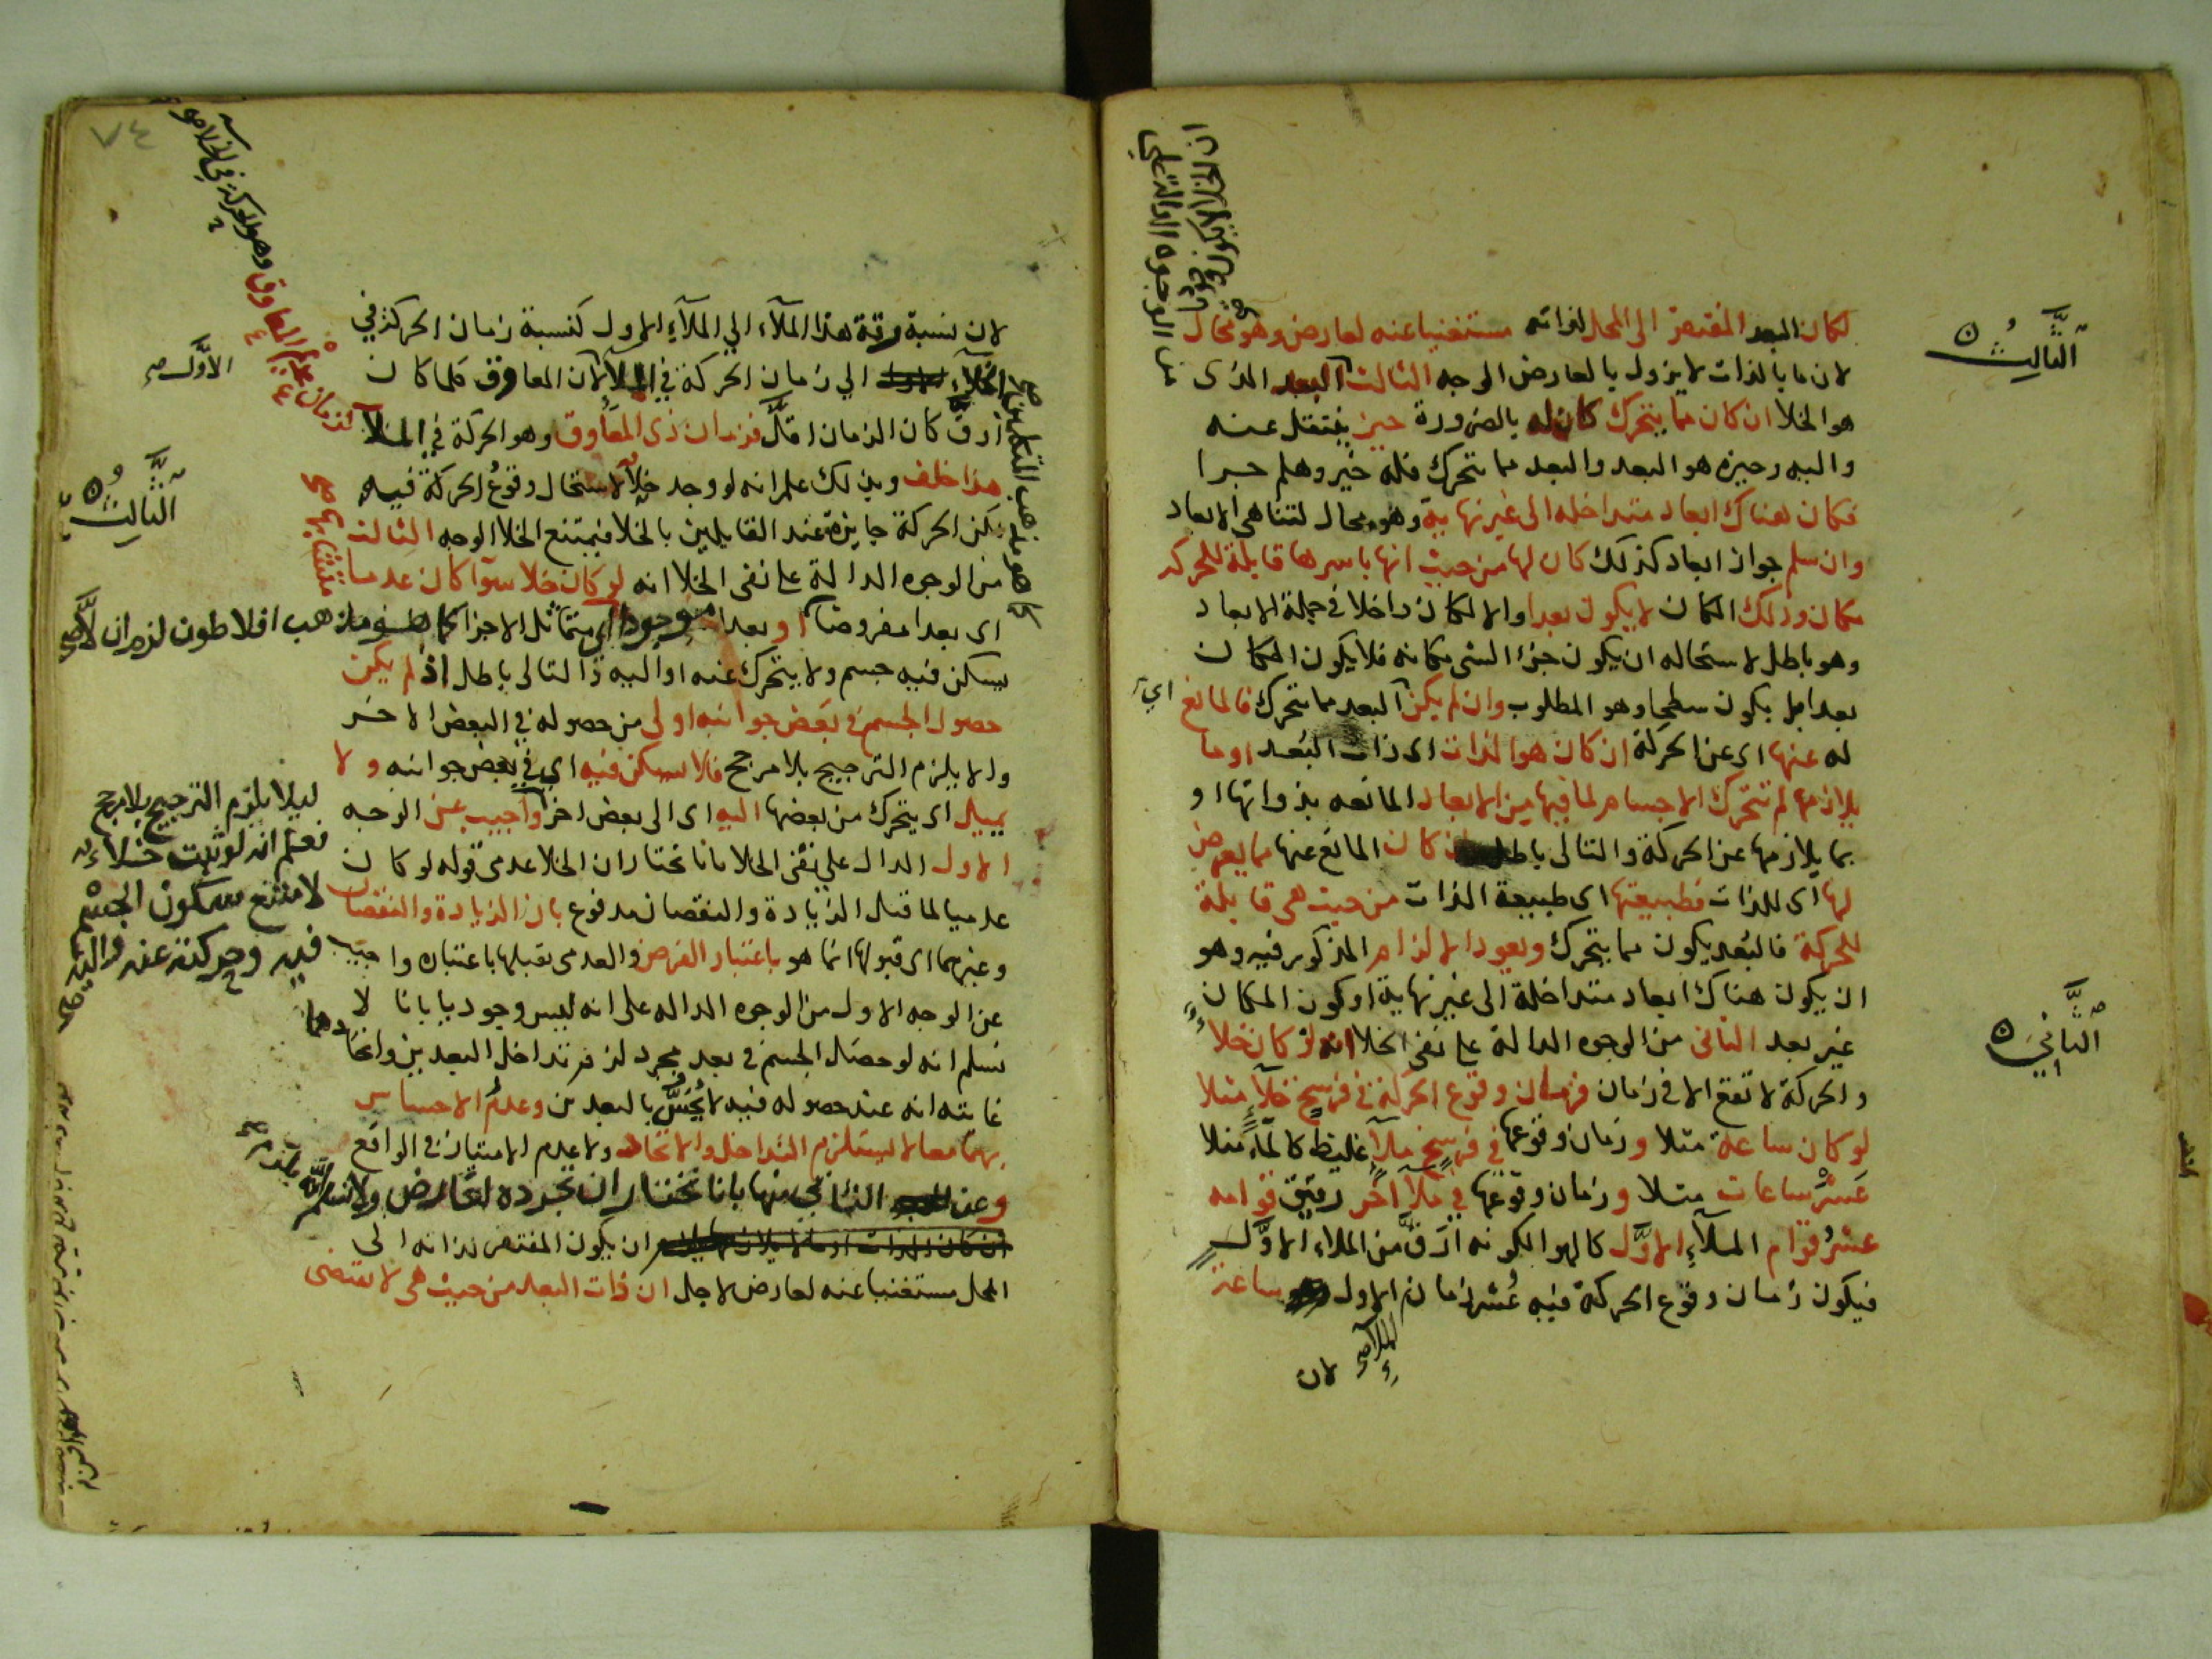 لكان البعد المفتقر الى المحل لذاته مستغنيا عنه لعارض وهو محال
لان ما بالذات لا يزول بالعارض الوجه الثالث البعد الذى
هو الخلا ان كان مما يتحرك كان له بالضرورة حيز ينتقل عنه
واليه وحيزه هو البعد والبعد مما يتحرك فله حيز وهلم جرا
فكان هناك ابعاد متداخله الى غير نهاية وهو محال لتناهى الابعاد
وان سلم جواز ابعاد كذلك كان لها من حيث انها باسرها قابلة للحركة
مكان وذلك المكان لا يكون بعدا والا لكان داخلا في جملة الابعاد
وهو باطل لاستحاله ان يكون جزء الشى مكانه فلا يكون المكان
بعدا بل يكون سطحا وهو المطلوب وان لم يكن البعد مما يتحرك فالمانع اي
له عنها اى عن الحركة ان كان هو الذات اى ذات البعد او ما
يلازمها لم تتحرك الاجسام لما فيها من الابعاد المانعه بذواتها او
بما يلازمها عن الحركة والتالى باطل كان المانع عنها مما يعرض
لها اى للذات فطبيعتها اى طبيعة الذات من حيث هى قابلة
للحركة فالبعد يكون مما يتحرك ويعود الالزام المذكور فيه وهو
ان يكون هناك ابعاد متداخلة الى غير نهاية او كون المكان
غير بعد الثانى من الوجوه الدالة على نفى الخلا انه لو كان خلاء
والحركة لا تقع الا في زمان فزمان وقوع الحركة في فرسخ خلآء مثلا
لو كان ساعة مثلا وزمان وقوعها في فرسخ ملآء غليظ كالماء مثلا
عشر ساعات مثلا وزمان وقوعها في ملآء آخر رقيق قوامه
عشر قوام الملآء الاول كالهوا لكونه ارق من الملاء الاول
فيكون زمان وقوع الحركة فيه عشر زمان الاول ساعة
الملآ صح
لان
الثالث
الثاني
٧٤
لان نسبة رقة هذا الملآء الي الملآء الاول كنسبة زمان الحركة في
الخلآء الي زمان الحركة في الملآء لان المعاوق كلما كان
ارق كان الزمان اقل فزمان ذى المعاوق وهو الحركة في الملآ
هذا خلف وبذلك علم انه لو وجد خلآء لاستحال وقوع الحركة فيه
لكن الحركة جايزة عند القايلين بالخلا فيمتنع الخلا الوجه الثالث
من الوجوه الدالة على نفى الخلا انه لو كان خلا سوآ كان عدما
اى بعدا مفروضا او بعدا موجودا اى متماثل الاجزا كما هو مذهب افلاطون لزم ان لا
يسكن فيه جسم ولا يتحرك عنه او اليه والتالى باطل اذ لم يكن
حصول الجسم في بعض جوانبه اولى من حصوله في البعض الاخر
والا يلزم الترجيح بلا مرجح فلا يسكن فيه اى في بعض جوانبه ولا
يميل اى يتحرك من بعضها اليه اى الى بعض اخر واجيب عن الوجه
الاول الدال علي نفى الخلا بانا نختار ان الخلا عدمى قوله لو كان
عدميا لما قبل الزيادة والنقصان مدفوع بان الزيادة والنقصان
وغيرهما اى قبولها انما هو باعتبار الفرض والعدمى يقبلها باعتباره واجيب
عن الوجه الاول من الوجوه الداله على انه ليس وجوديا بانا لا
نسلم انه لو حصل الجسم في بعد مجرد لزم تداخل البعدين واتحادهما
غايته انه عند حصوله فيه لا يحس بالبعدين وعدم الاحساس
بهما معا لا يستلزم التداخل والاتحاد ولا عدم الامتياز في الواقع
وعن الثاني منها بانا نختار ان تجرده لعارض ولا نسلم انه يلزم
ان يكون المفتقر لذاته الى
المحل مستغنيا عنه لعارض لاجل ان ذات البعد من حيث هى لا تقتضى
الاول صح
الثالث
ليلا يلزم الترجيح بلا مرجح
فعلم انه لو ثبت خلاء
لامتنع سكون الجسم
فيه وحركته عنه واليه
لزمان عديم المعاوق وهو الحركة في الخلا
كما هو مذهب المتكلمين